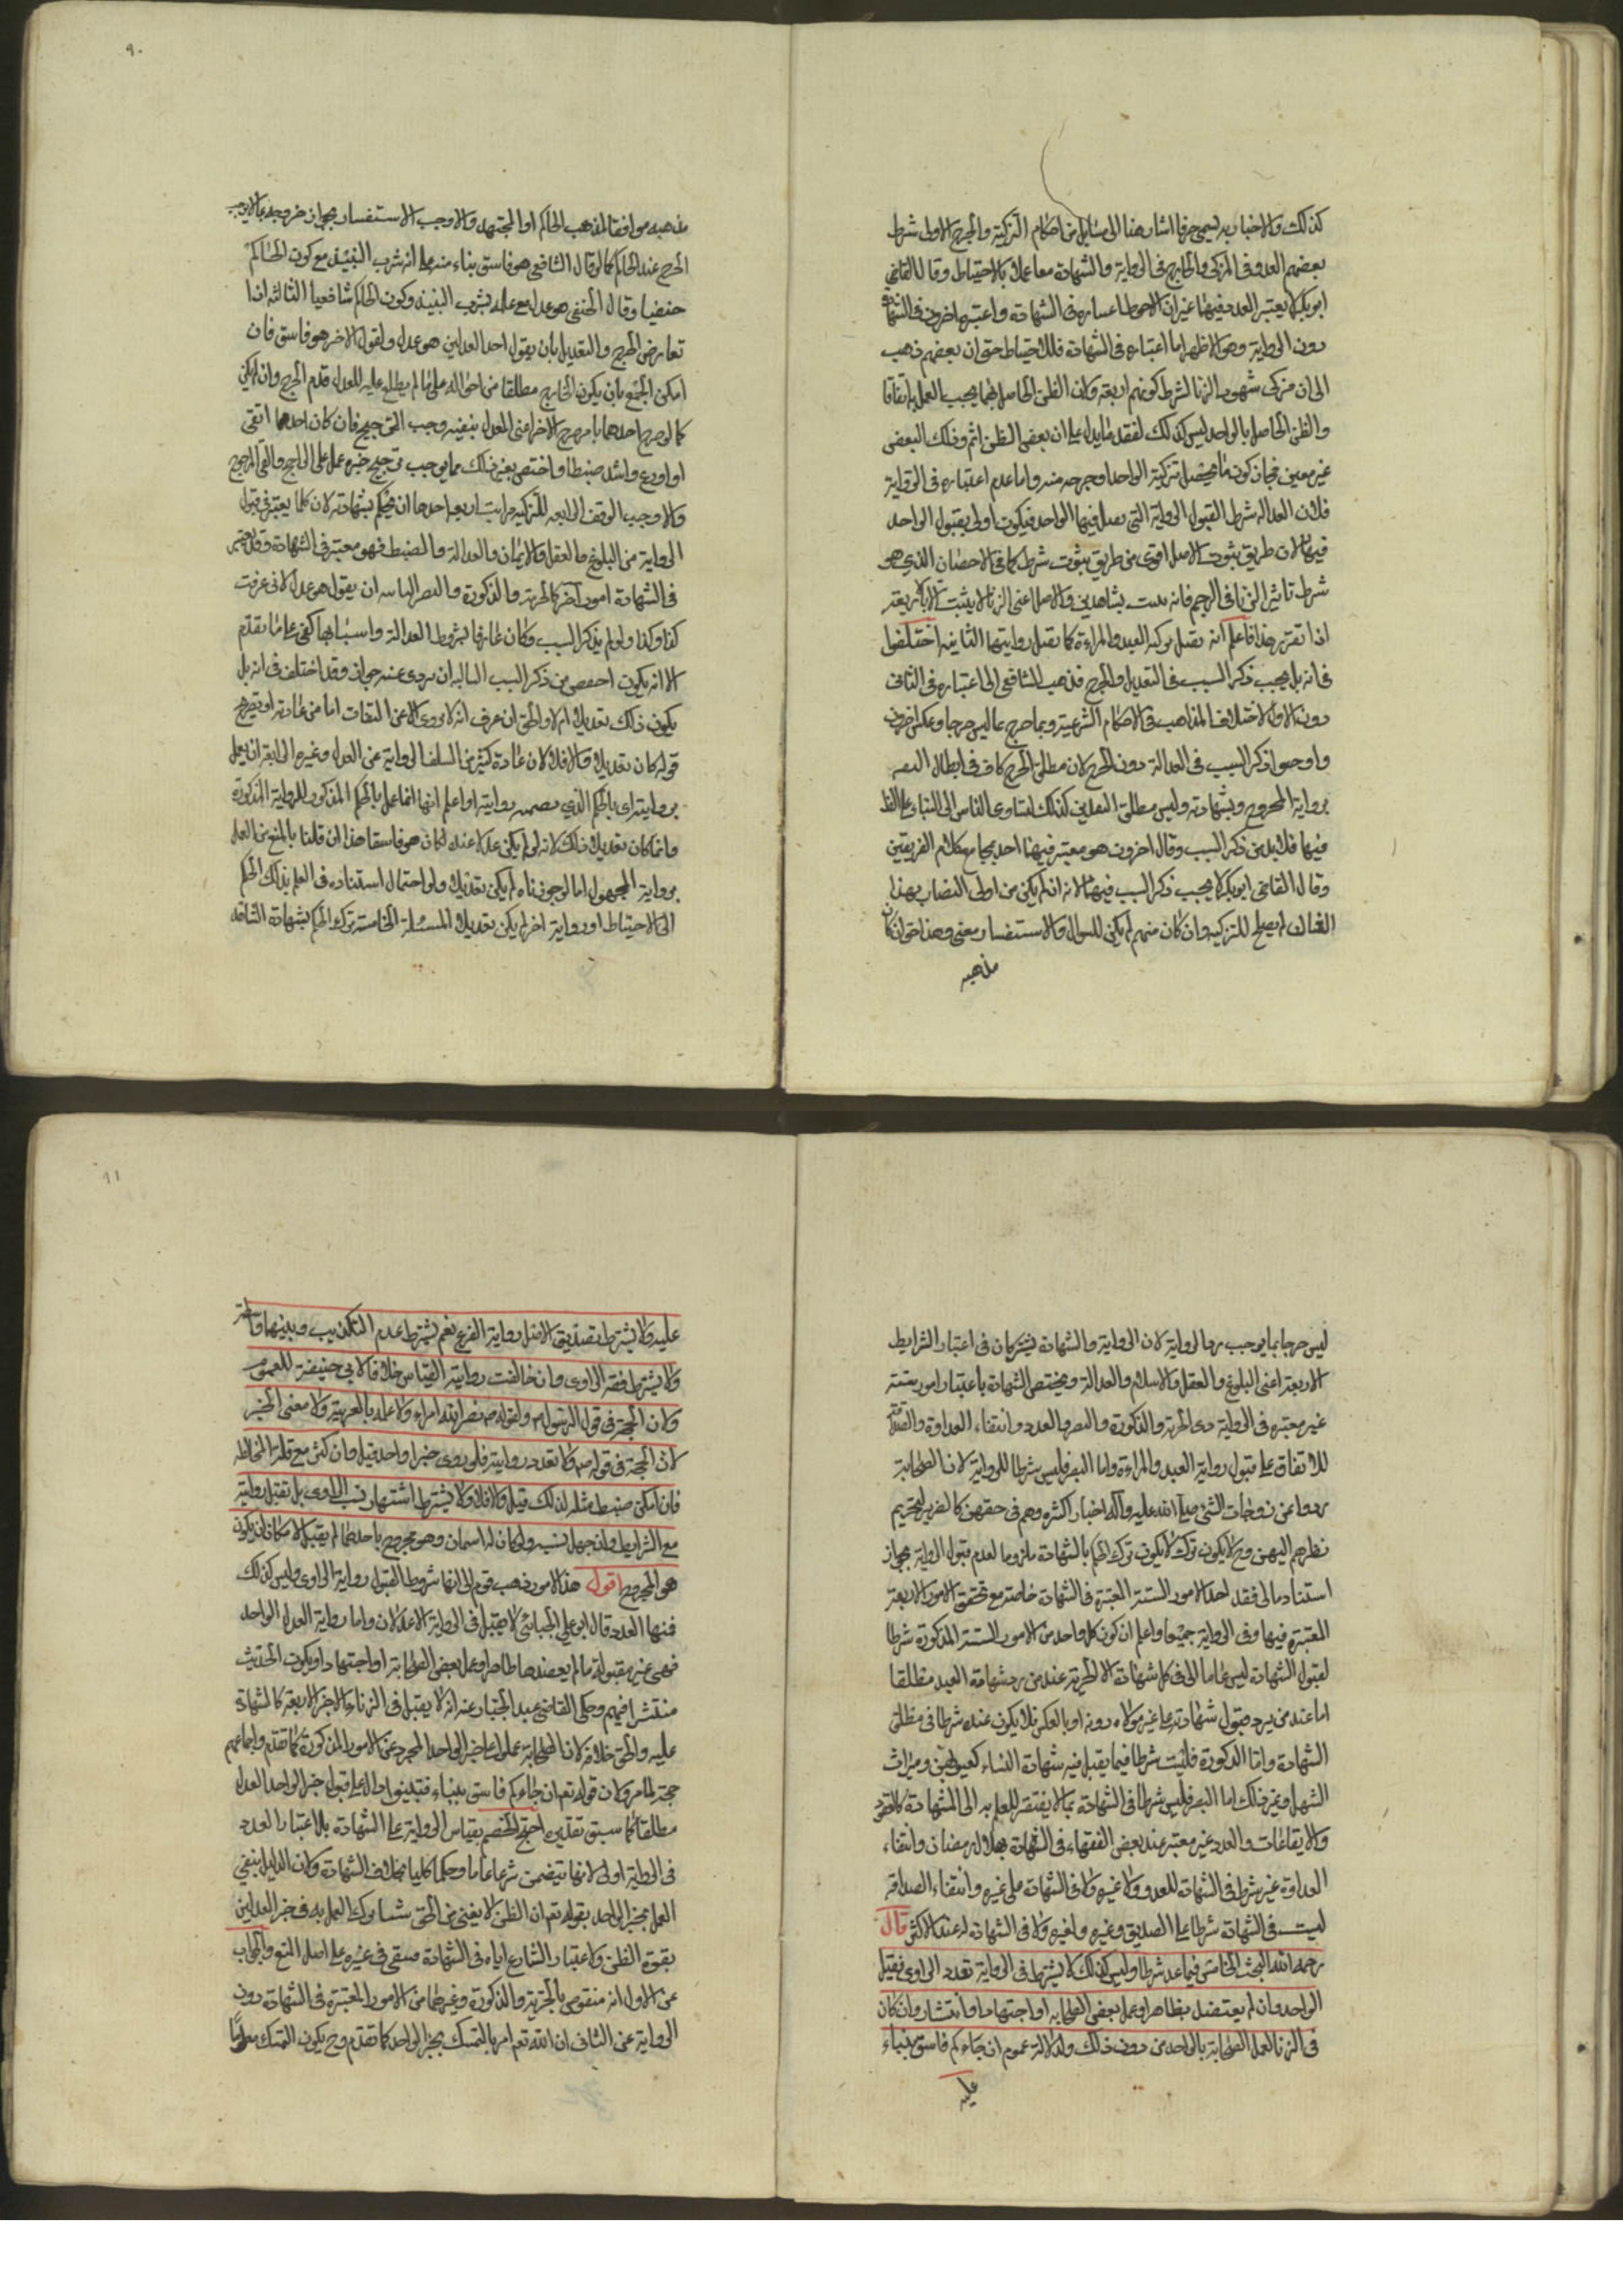 ٩٠
كذلك والاخبار به يسمى جرحا اشار هنا الى مسائل من احكام التزكية والجرح الاولى شرط
بعضهم العدد فى المزكى والجارح فى الرواية والشهادة معا عملا بالاحتياط وقال القاضى
ابو بكر لا يعتبر العدد فيهما غير ان الاحوط اعتباره فى الشهادة واعتبره اخرون فى الشهادة
دون الرواية وهو الاظهر اما اعتباره فى الشهادة فللاحتياط حتى ان بعضهم ذهب
الى ان مزكى شهود الزنا الشرط كونهم اربعة ولان الظن الحاصل بهما يجب العمل به اتفاقا
والظن الحاصل بالواحد ليس كذلك لفقد ما يدل عليه ان بعض الظن اثم وذلك البعض
غير معين فجاز كونه ما يحصل بتزكية الواحد او جرحه منه واما عدم اعتباره فى الرواية
فلان العدالة شرط لقبول الرواية التى يقبل فيها الواحد فيكون اولى بقبول الواحد
فيها لان طريق ثبوت الاصل اقوى من طريق ثبوت شرطه كما فى الاحصان الذي هو
شرط تاثير الزنا فى الرجم فانه يثبت بشاهدين والاصل اعنى الزنا لا يثبت الا باربعة
اذا تقرر هذا فاعلم انه تقبل تزكية العبد والمراءة كما تقبل روايتهما الثانية اختلفوا
فى انه هل يجب ذكر السبب فى التعديل والجرح فذهب الشافعى الى اعتباره فى الثانى
دون الاول لاختلاف المذاهب فى الاحكام الشرعية وربما جرح بما ليس جرحا وعكس اخرون
واوجبوا ذكر السبب فى العدالة دون الجرح لان مطلق الجرح كاف فى ابطال الثقة
برواية المجروح وبشهادته وليس مطلق التعديل كذلك لتسارع الناس الى الثناء على الظاهر
فيها فلابد من ذكر السبب وقال اخرون هو معتبر فيهما اخذ بمجامع كلام الفريقين
وقال القاضى ابو بكر لا يجب ذكر السبب فيهما لانه ان لم يكن من اولى البصائر بهذا
الشان لم يصلح للتزكية وان كان منهم لم يكن للسؤال والاستفسار معنى وهذا حق ان كان
مذهبه
مذهبه موافقا لمذهب الحاكم او المجتهد والا وجب الاستفسار لجواز جرحه بما لا يوجب
الجرح عند الحاكم كما لو قال الشافعى هو فاسق بناء منه على انه شرب النبيذ مع كون الحاكم
حنفيا وقال الحنفى هو عدل مع علمه بشرب النبيذ وكون الحاكم شافعيا الثالثة اذا
تعارض الجرح والتعديل بان يقول احد العدلين هو عدل ويقول الاخر هو فاسق فان
امكن الجمع بان يكون الجارح مطلعا من احواله على ما لم يطلع عليه المعدل قدم الجرح وان لم يكن
كما لو جرح احدهما بما صرح الاخر اعنى المعدل بنفيه وجب الترجيح فان كان احدهما اتقى
او اورع واشد ضبطا واختص بغير ذلك مما يوجب ترجيح خبره عمل على الراجح والغى المرجوح
والا وجب الوقف الرابعة للتزكية مراتب اربع احدها ان يحكم بشهادته لان كلما يعتبر فى قبول
الرواية من البلوغ والعقل والايمان والعدالة والضبط فهو معتبر فى الشهادة وقد يعتبر
فى الشهادة امور اخر كالحرية والذكورة والبصر الثانية ان يقول هو عدل لانى عرفت
كذا وكذا ولو لم يذكر السبب وكان عارفا بشروط العدالة واسبابها كفى على ما تقدم
الا انه يكون اخفض من ذكر السبب الثالثة ان يروى عنه خبرا وقد اختلف فى انه هل
يكون ذلك تعديلا ام لا والحق ان عرف انه لا يروى الا عن الثقات اما من عادته او بصريح
قوله كان تعديلا والا فلا لان عادة كثير من السلف الرواية عن العدل وغيره الرابعة ان يعمل
بروايته اى بالحكم الذي تضمنه روايته او اعلم انها انما عمل بالحكم المذكور للرواية المذكورة
وانما كان تعديلا ذلك لانه لو لم يكن عدلا عنده لكان هو فاسقا هذا ان قلنا بالمنع من العمل
برواية المجهول اما لو جوزناه لم يكن تعديلا ولو احتمل استناده فى العلم بذلك الحكم
الى الاحتياط او رواية اخر لم يكن تعديلا المسئلة الخامسة ترك الحكم بشهادة الشاهد
٩١
ليس جرحا بما يوجب رد الرواية لان الرواية والشهادة يشتركان فى اعتبار الشرايط
الاربعة اعنى البلوغ والعقل والاسلام والعدالة ويختص الشهادة باعتبار امور ستة
غير معتبرة فى الرواية هى الحرية والذكورة والبصر والعدد وانتفاء العداوة والصداقة
للاتفاق على قبول رواية العبد والمراءة واما البصر فليس شرطا للرواية لان الصحابة
رووا عن زوجات النبى صلى الله عليه وآله اخبار اكثيره وهم فى حقهن كالضرير لتحريم
نظرهم اليهن وح لا يكون ترك الحكم بالشهادة ملزوما لعدم قبول الرواية لجواز
استناده الى فقد احد الامور الستة المعتبرة فى الشهادة خاصة مع تحقق الامور الاربعة
المعتبرة فيها وفى الرواية جميعا واعلم ان كون كل واحد من الامور الستة المذكورة شرطا
لقبول الشهادة ليس عاما الى فى كل شهادة الا الحرية عند من رد شهادة العبد مطلقا
اما عند من يرد قبول شهادته على غير مولاه دونه او بالعكس فلا يكون عنده شرطا فى مطلق
الشهادة واما الذكورة فليست شرطا فيما يقبل فيه شهادة النساء كعيوبهن وميراث
المستهل وغير ذلك اما البصر فليس شرطا فى الشهادة بما لا يفتقر العلم به الى المشاهدة كالعقود
والايقاعات والعدد غير معتبر عند بعض الفقهاء فى الشهادة بهلال رمضان وانتفاء
العداوة غير شرط فى الشهادة للعدو ولا غيره ولا فى الشهادة على غيره وانتفاء الصداقة
ليست فى الشهادة شرطا على الصديق وغيره ولغيره ولا فى الشهادة له عند الاكثر قال
رحمه الله البحث الخامس فيما عد شرطا وليس كذلك لا يشترط فى الرواية تعدد الراوى فيقبل
الواحد وان لم يعتضد بظاهر او عمل بعض الصحابه او اجتهاد او انتشار وان كان
فى الزنا لعمل الصحابة بالواحد من دون ذلك ولدلالة عموم ان جاءكم فاسق بنباء
عليه
عليه ولا يشترط تصديق الاصل رواية الفرع نعم يشترط عدم التكذيب وبينهما واسطة
ولا يشترط فقه الراوى وان خالفت روايته القياس خلافا لابى حنيفة للعموم
ولان الحجة فى قول الرسول م ولقوله ص نضر الله امراء ولا علمه بالعربية ولا معنى الخبر
لان الحجة فى قوله ص ولا تعدد روايته فلو روى خبرا واحدا قبل وان كثر مع قلة المخالطة
فان امكن ضبط مثله لذلك قبل والا فلا ولا يشترط اشتهار نسب الراوى بل تقبل روايته
مع الشرايط وان جهل نسبه ولو كان له اسمان وهو مجروح باحدهما لم يقبل لامكان ان يكون
هو المجروح اقول هذا الامور ذهب قوم الى انها شروط لقبول رواية الراوى وليس كذلك
فمنها العدد قال ابو على الجبائى لا يقبل فى الرواية الا عدلان واما رواية العدل الواحد
فهى غير مقبولة ما لم يعضدها ظاهر او عمل بعض الصحابة او اجتهاد او يكون الحديث
منتشرا فيهم وحكى القاضى عبد الجبار عنه انه لا يقبل فى الزناء الا خبر الاربعة كالشهادة
عليه والحق خلافه لان الصحابة عملوا على خبر الواحد المجرد عن الامور المذكورة كما تقدم واجماعهم
حجة لما مر ولان قوله تع ان جاءكم فاسق بنباء فتبينوا دال على قبول خبر الواحد العدل
مطلقا كما سبق تقديره احتج الخصم بقياس الرواية على الشهادة بل اعتبار العدد
فى الرواية اولى لانها تتضمن شرعا عاما وحكما كليا بخلاف الشهادة ولان الدليل ينفى
العمل بخبر الواحد بقوله تع ان الظن لا يغنى من الحق شيئا وترك العمل به فى خبر العدلين
بقوة الظن ولاعتبار الشارع اياه فى الشهادة فبقى فى غيره على اصل المنع والجواب
عن الاول انه منقوض بالحرية والذكورة وغيرهما من الامور المعتبرة فى الشهادة دون
الرواية عن الثانى ان الله تع امر بالتمسك بخبر الواحد كما تقدم وح يكون التمسك معلوما